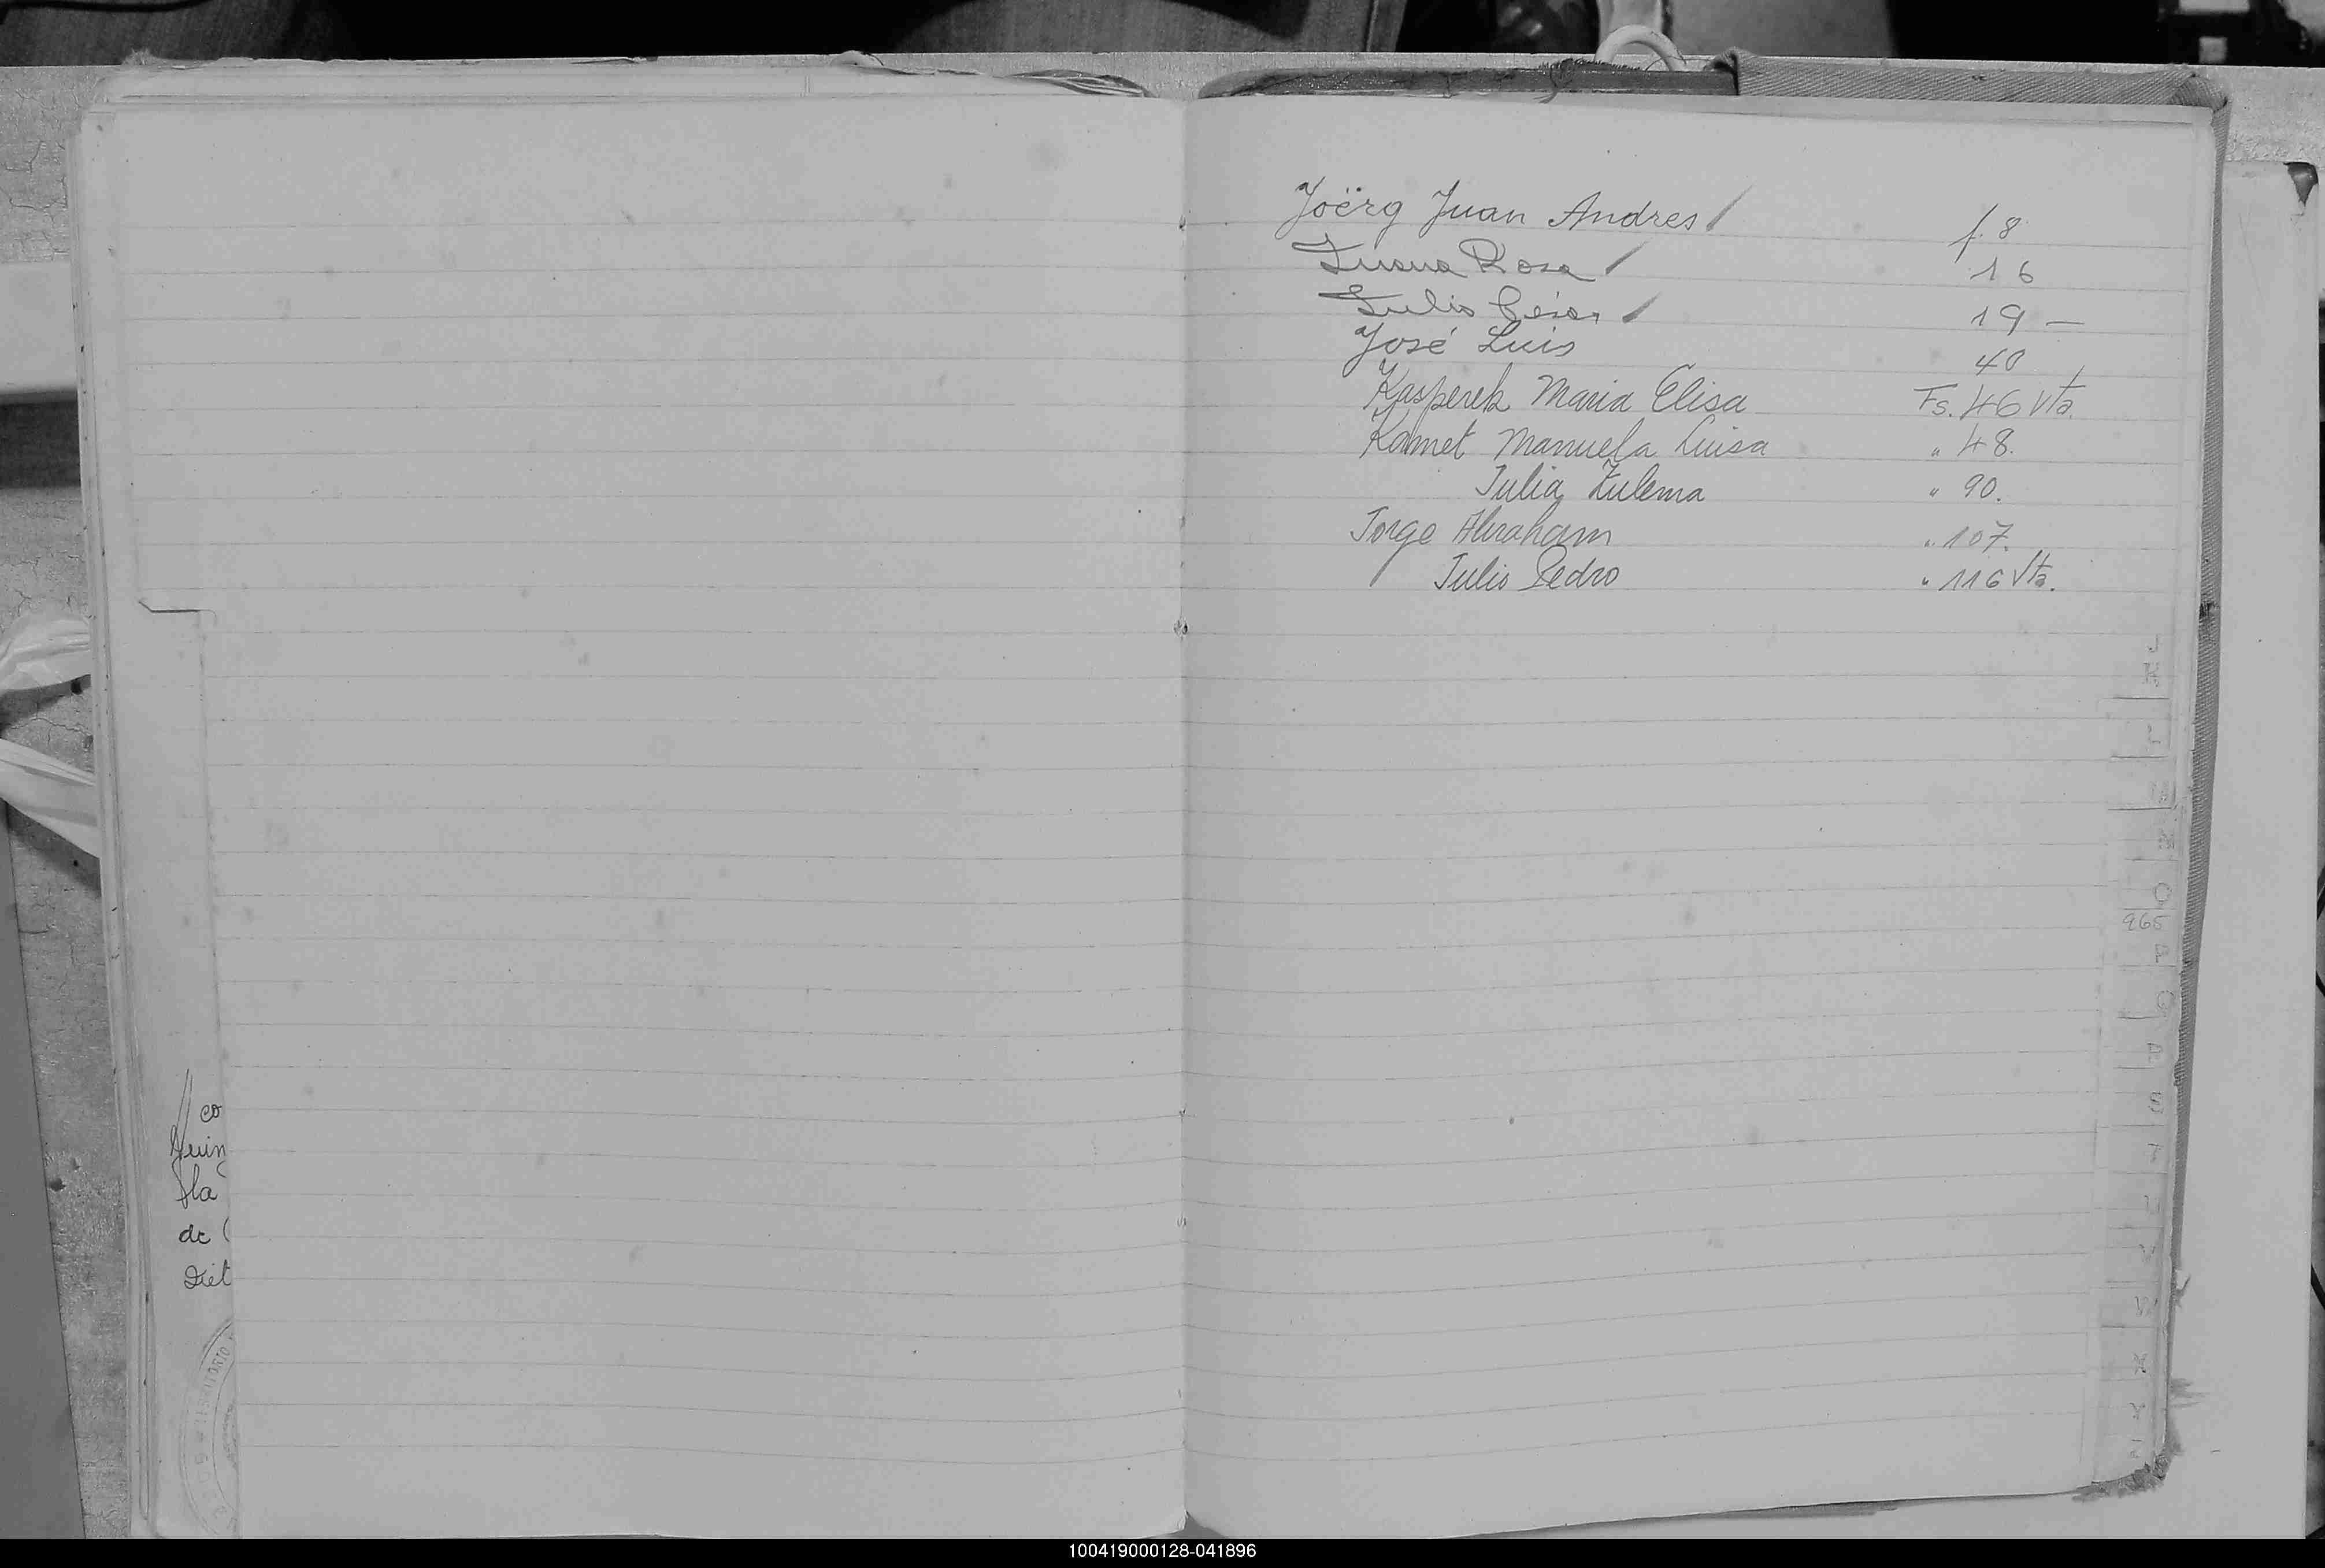 co
la
de (
Diet
Joërg Juan Andres / f. 8
Juana Rosa / 16
Julio César / 19 —
José Luis 40
Kasperek Maria Elisa Fs. 46 Vta.
Kamet Manuela Luisa " 48.
Julia Zulema " 90.
Jorge Abraham " 107.
Julio Pedro " 116 Vta.
965
100419000128-041896